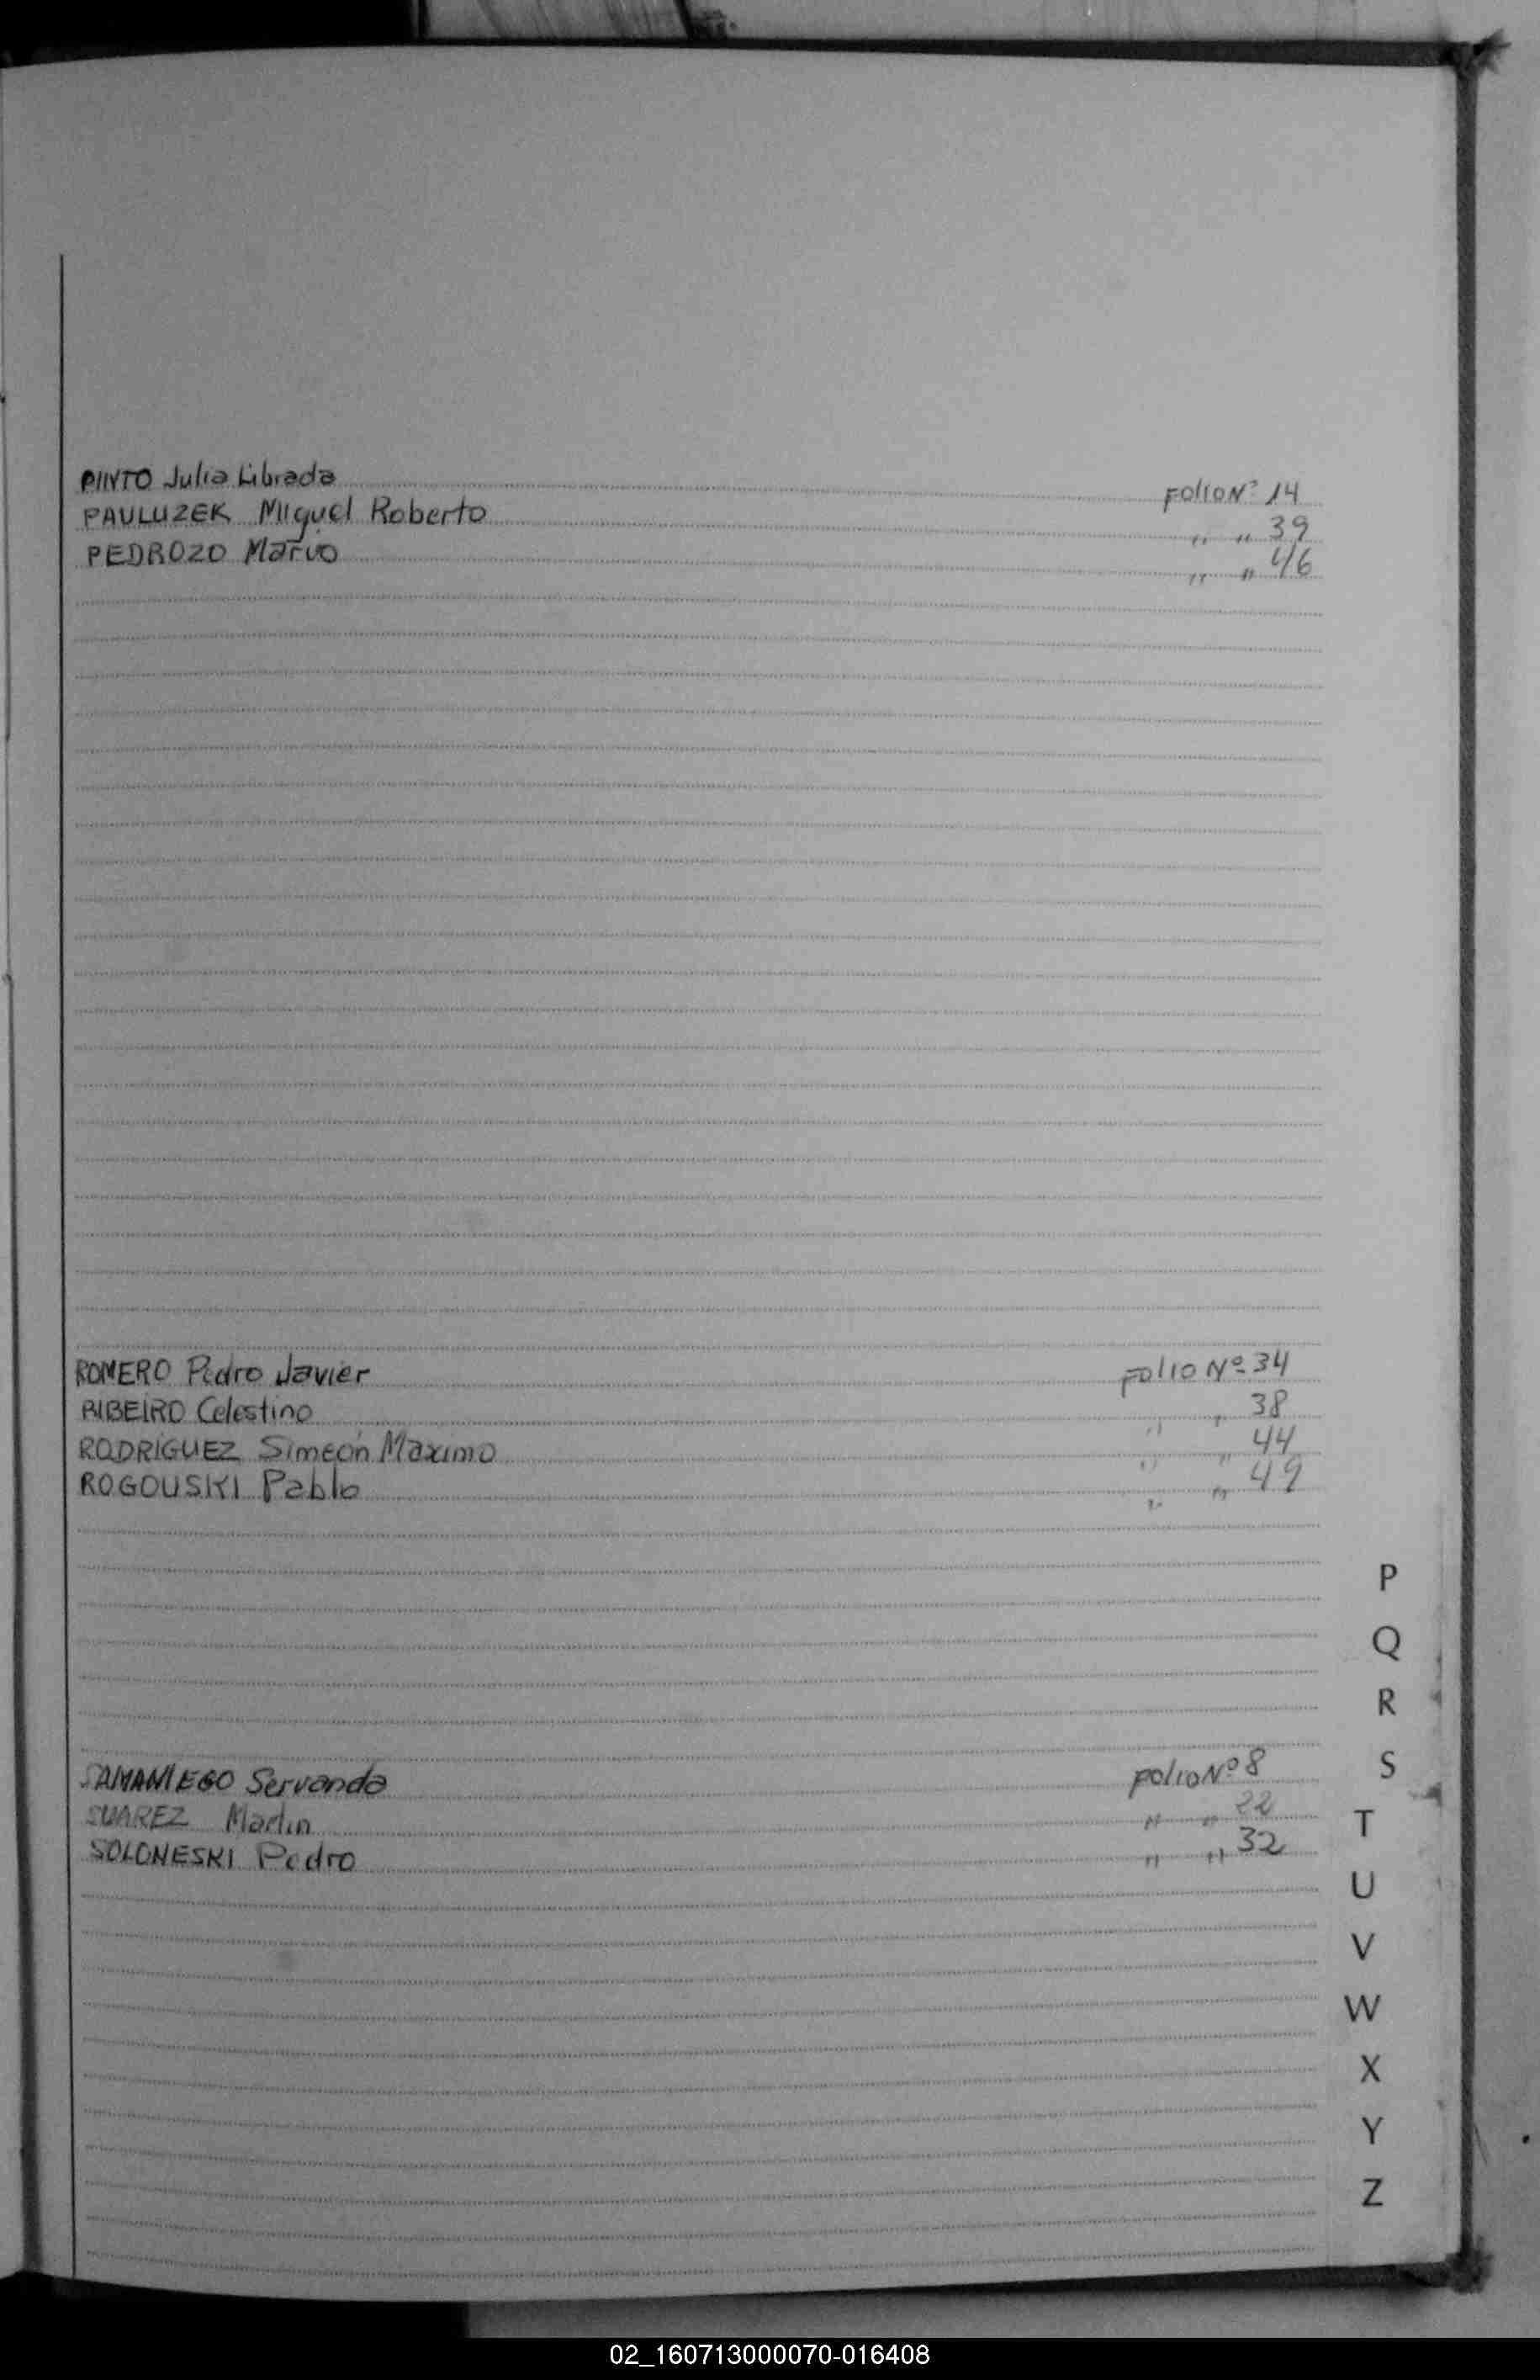 PINTO Julia Librada FOLIO Nº 14
PAULUZEK Miguel Roberto " " 39
PEDROZO Mario " " 46
ROMERO Pedro Javier FOLIO Nº 34
RIBEIRO Celestino " " 38
RODRIGUEZ Simeón Maximo " " 44
ROGOUSKI Pablo " " 49
P
Q
R
SAMANIEGO Servanda FOLIO Nº 8
S
SUAREZ Martin " " 22
T
SOLONESKI Pedro " " 32
U
V
W
X
Y
Z
02_160713000070-016408